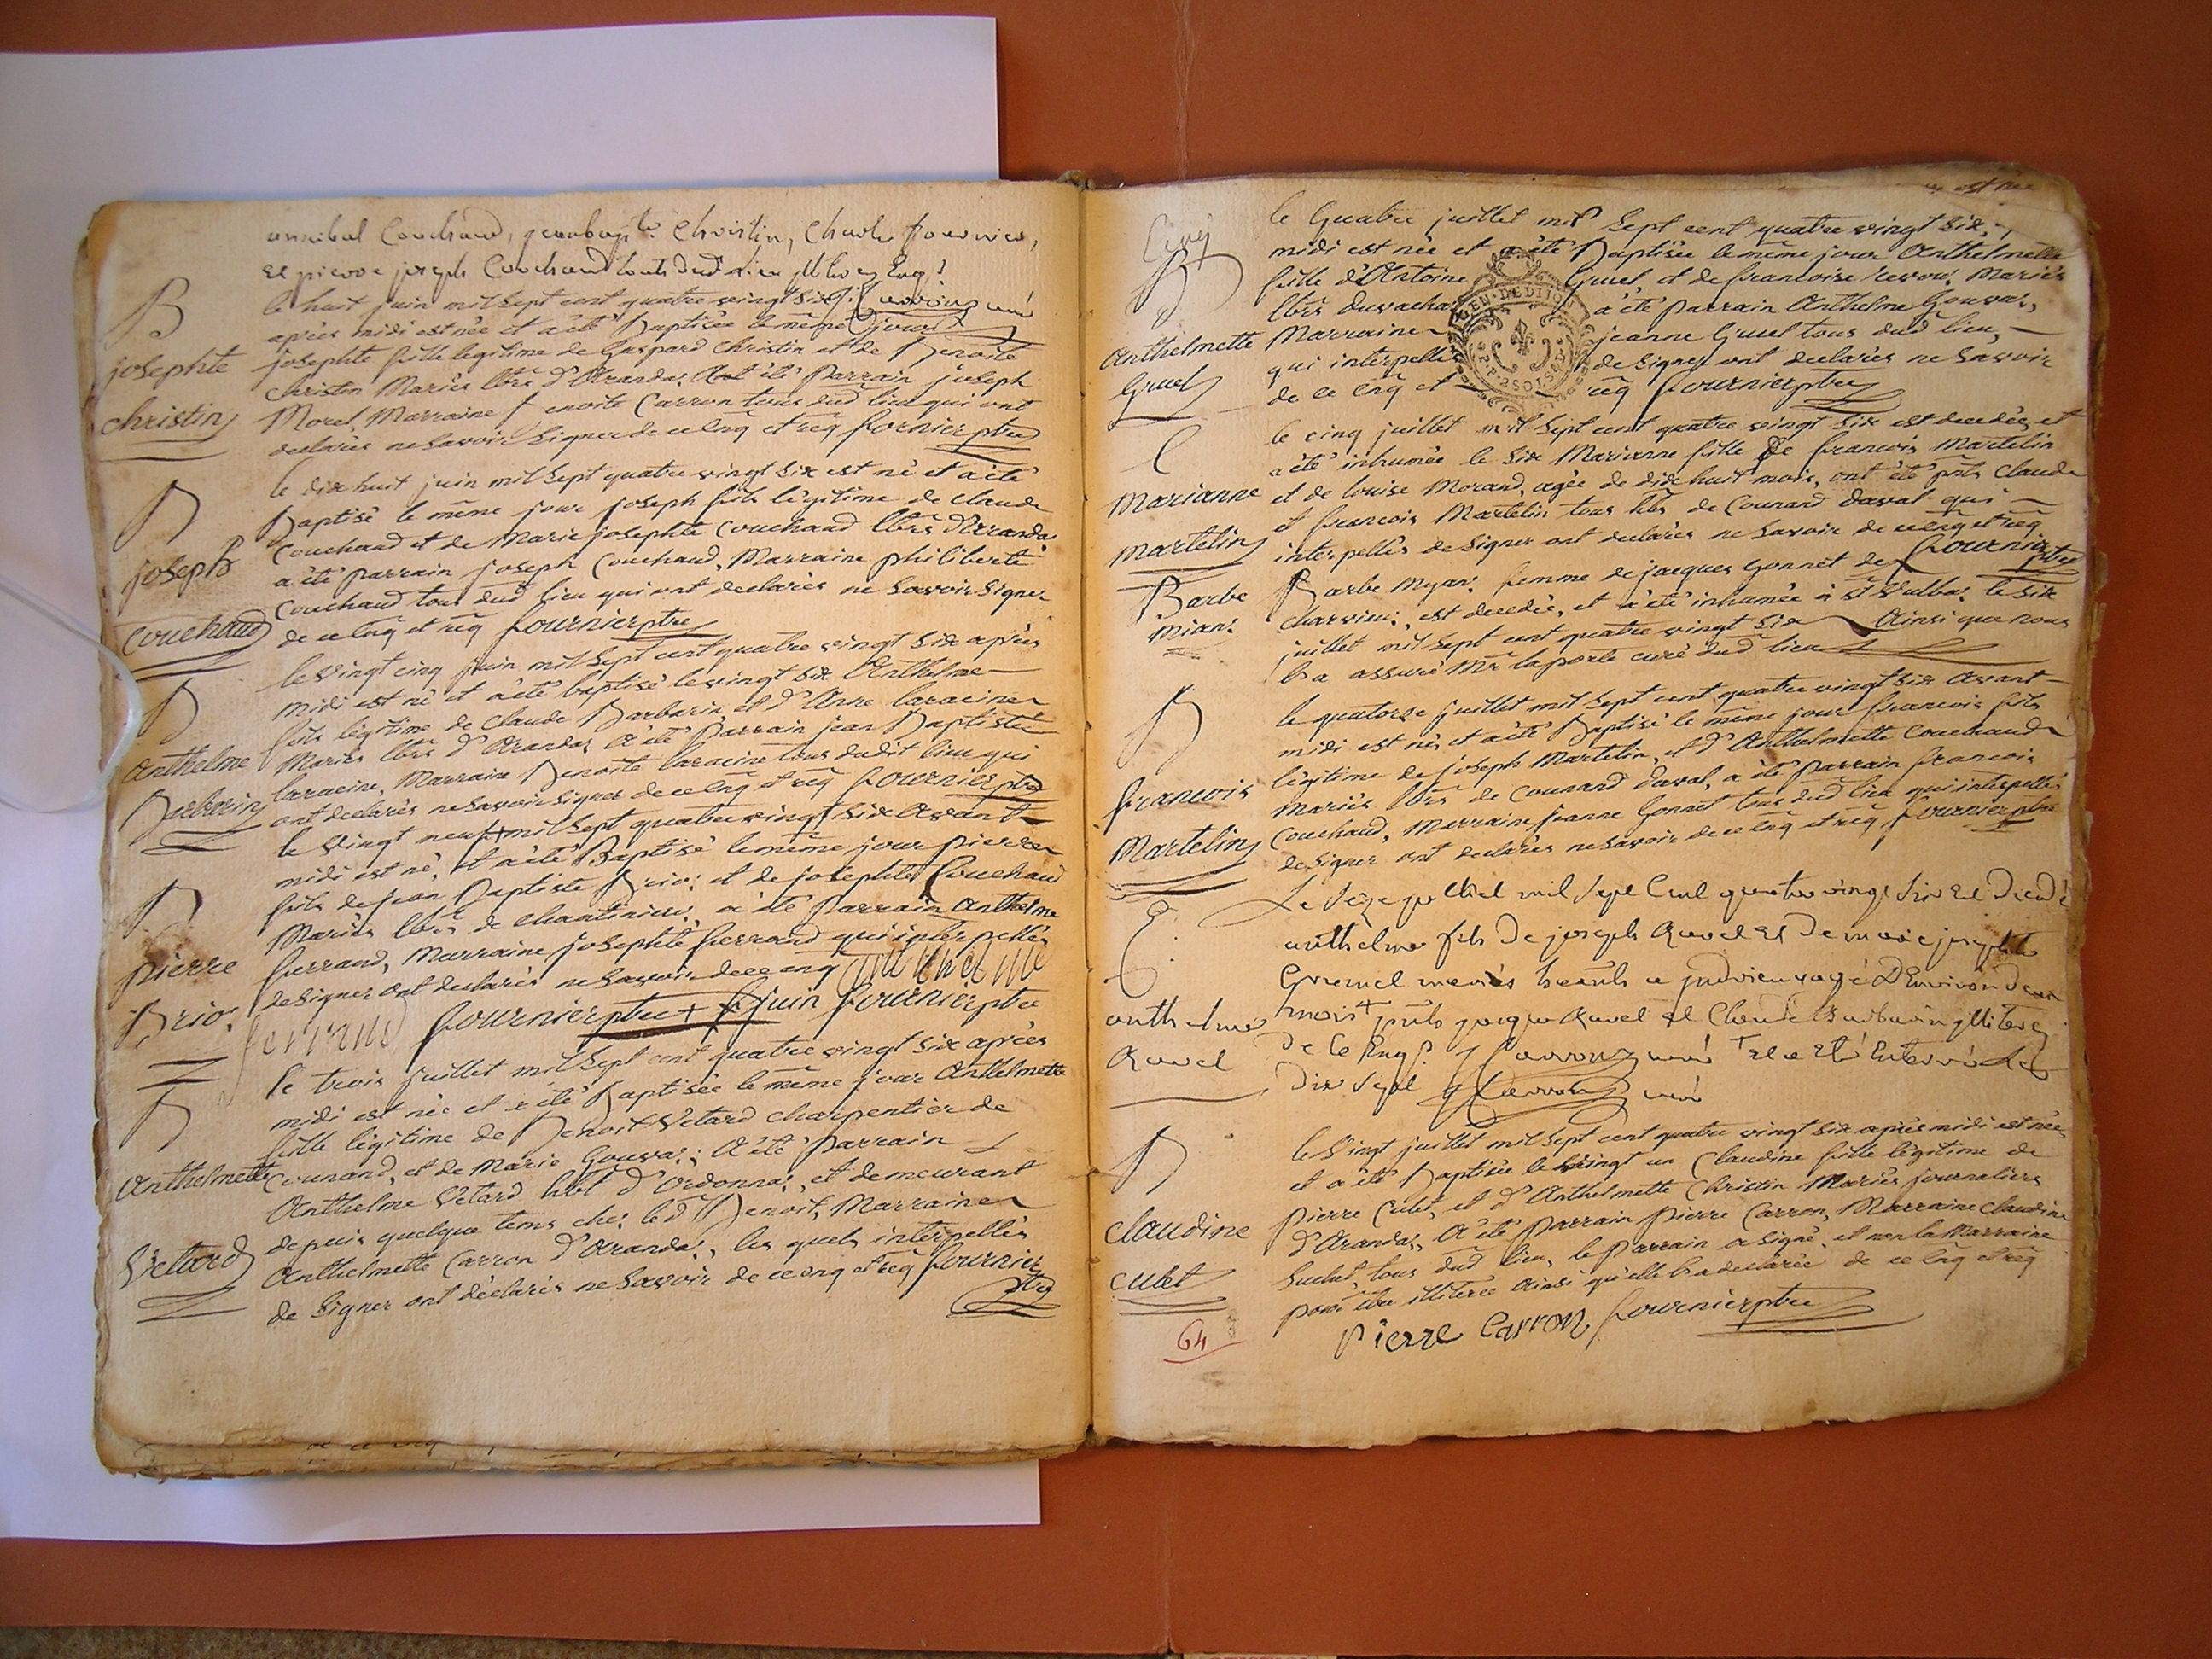 Couchaud, Christin, Charle fournier,
Et pierre joseph Couchaud touts dud lieu Enq.
B
josephte
christin
le huit juin mil sept cent quatre vingt six
après midi est née et a été Baptisée le même jour
josephte fille legitime de Gaspard christin et de Benoite
christin Mariés d'Arandas. Ont été Parrain joseph
Morel, Marraine Benoite Carron tous dud lieu qui ont
declarés ne Savoir Signer de ce Enq et req fornier ptre
B
joseph
couchaud
le dix huit juin mil sept quatre vingt six est né et a été
Baptisé le même jour joseph fils légitime de claude
Couchaud et de Marie josephte Couchaud d'Arandas
a été parrain joseph Couchaud, Marraine philiberte
Couchaud tous dud lieu qui ont declarés ne Savoir Signer
de ce Enq et req fournier ptre
B
Anthelme
Barbarin
le vingt cinq juin mil Sept cent quatre vingt Six après
midi est né et a été baptisé le vingt six Anthelme
fils légitime de claude Barbarin et d'Anne laracine
Mariés d'Arandas a été Parrain jean Baptiste
laracine, Marraine Benoite laracine tous dudit lieu qui
ont declarés ne Savoir Signer de ce Enq et req fournier ptre
B
pierre
Brio:
le Vingt neuf + mil Sept quatre vingt Six Avant
midi est né, et a été Baptisé le même jour pierre
fils de jean Baptiste Brio: et de josephte Couchaud
Mariés de a été Parrain Anthelme
ferrand, Marraine josephte ferrand qui interpellés
de Signer ont declarés ne Savoir de ce enq Anthelme
ferrand fournier ptre + juin fournier ptre
B
Anthelmette
Vetard
le trois juillet mil Sept cent quatre vingt six après
midi est née et a été Baptisée le même jour Anthelmette
fille légitime de Benoit Vetard charpentier de
Counand, et de Marie Gouva:; a été Parrain
Anthelme Vetard d'Ordonna:, et demeurant
depuis quelque tems che: le d Benoit, Marraine
Anthelmette Carron d'Aranda:, les quels interpellés
de Signer ont déclarés ne Savoir de ce enq et req fournier
ptre
B
Anthelmette
Gruel
le Quatre juillet mil Sept cent quatre vingt Six,
midi est née et a été Baptisée le même jour Anthelmette
fille d'Antoine Gruel, et de francoise Mariés
a été Parrain Anthelme Gouva:,
Marraine jeanne Gruel tous dud lieu,
qui interpellés de Signer ont declarés ne Savoir
de ce enq et req fournier ptre
Marianne
Martelin
le cinq juillet mil Sept cent quatre vingt Six est decedée, et
a été inhumée le Six Marianne fille de francois Martelin
et de louise Morand, agée de dix huit mois, ont été pnts claude
et francois Martelin tous de Counand Daval qui
interpellés de Signer ont declarés ne Savoir de ce enq et req
fournier ptre
Barbe
Mian:
Barbe Myan: femme de jacques Gonnet de
est decedée, et a été inhumée à St Vulba: le Six
juillet mil Sept cent quatre vingt Six Ainsi que nous
l'a assuré Mr laporte curé dud lieu
B
francois
Martelin
le quatorze juillet mil Sept cent quatre vingt Six Avant
midi est né, et a été Baptisé le même jour francois fils
légitime de joseph Martelin, et d'Anthelmette Couchaud
Mariés de Counand daval, a été Parrain francois
Couchaud, Marraine jeanne Gonnet tous dud lieu qui interpellés
de Signer ont declarés ne Savoir de ce Enq et req fournier ptre
E
anthelme
Ravel
Le Seize juilliet mil Sept Cent quatre vingt Six Est Decedé
anthelme fils De joseph Ravel et De marie josephte
mariés agé D'Environ Deux
mois + pnts jacque Ravel et Claude Barbarin
De Ce Enq. Carron curé + et a Eté Enterré Le
Dix Sept Carron curé
B
claudine
culet
le Vingt juillet mil Sept cent quatre vingt Six après midi est née
et a été Baptisée le vingt un Claudine fille légitime de
Pierre Culet, et d'Anthelmette Christin Mariés journaliers
d'Arandas, A été Parrain Pierre Carron, Marraine Claudine
Suchet, tous dud lieu, le Parrain a Signé, et non la Marraine
pour être illiterée Ainsi qu'elle l'a declarée de ce Enq et req
Pierre Carron fournier ptre
64